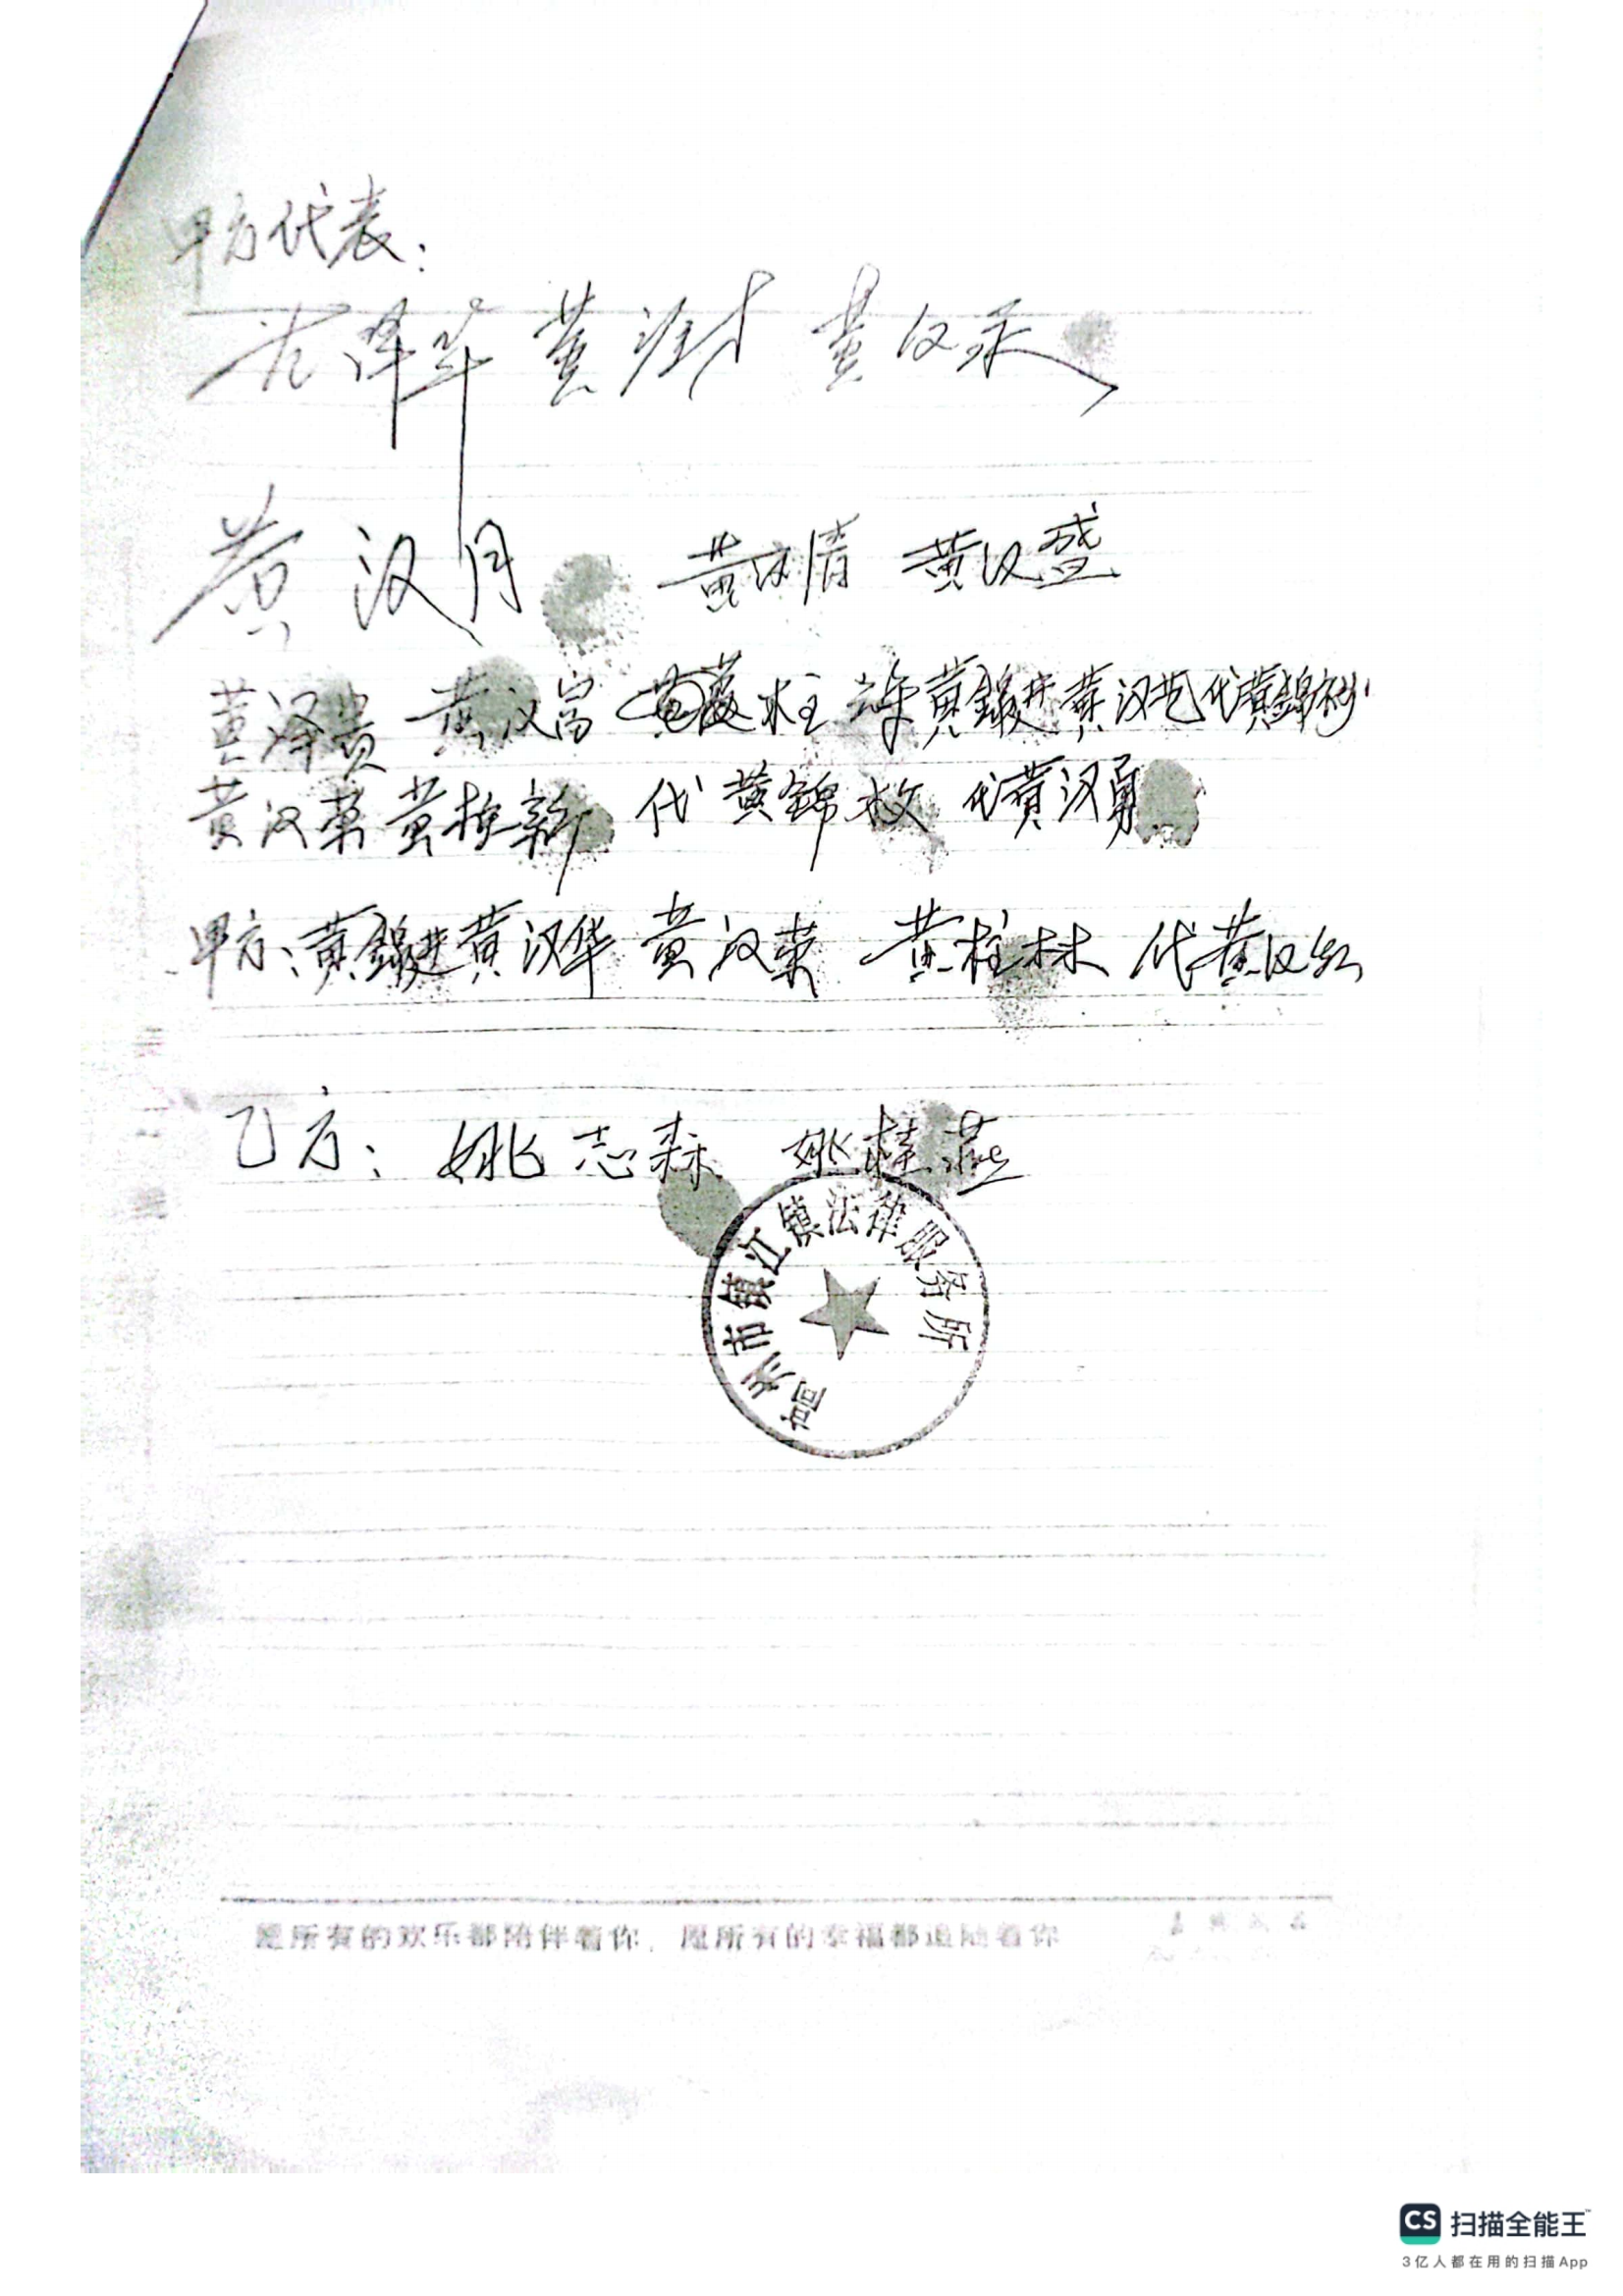 甲方代表:
黄泽华 黄 黄汉
黄汉月 黄汉清 黄汉盛
黄泽贵 黄汉富 柱 黄錦进 黄汉 代黄錦
黄汉荣 黄 新 代黄錦枚 代黄汉勇
甲方:黄錦进 黄汉华 黄汉荣 黄柱林 代黄汉
乙方: 姚志森 姚桂燕
高州市镇江镇法律服务所
愿所有的欢乐都陪伴着你, 愿所有的幸福都追随着你
CS 扫描全能王™
3亿人都在用的扫描App